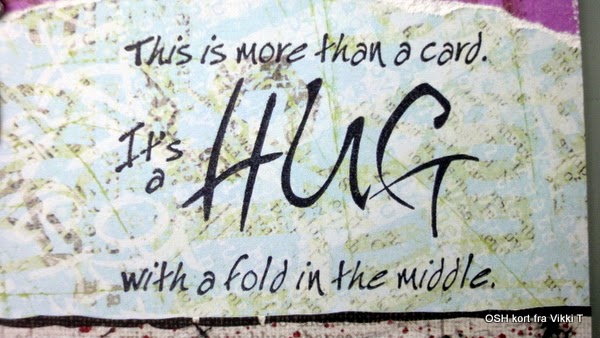 This is more than a card.
It's
a
HUG
with a fold in the middle.
OSH kort fra Vikki T